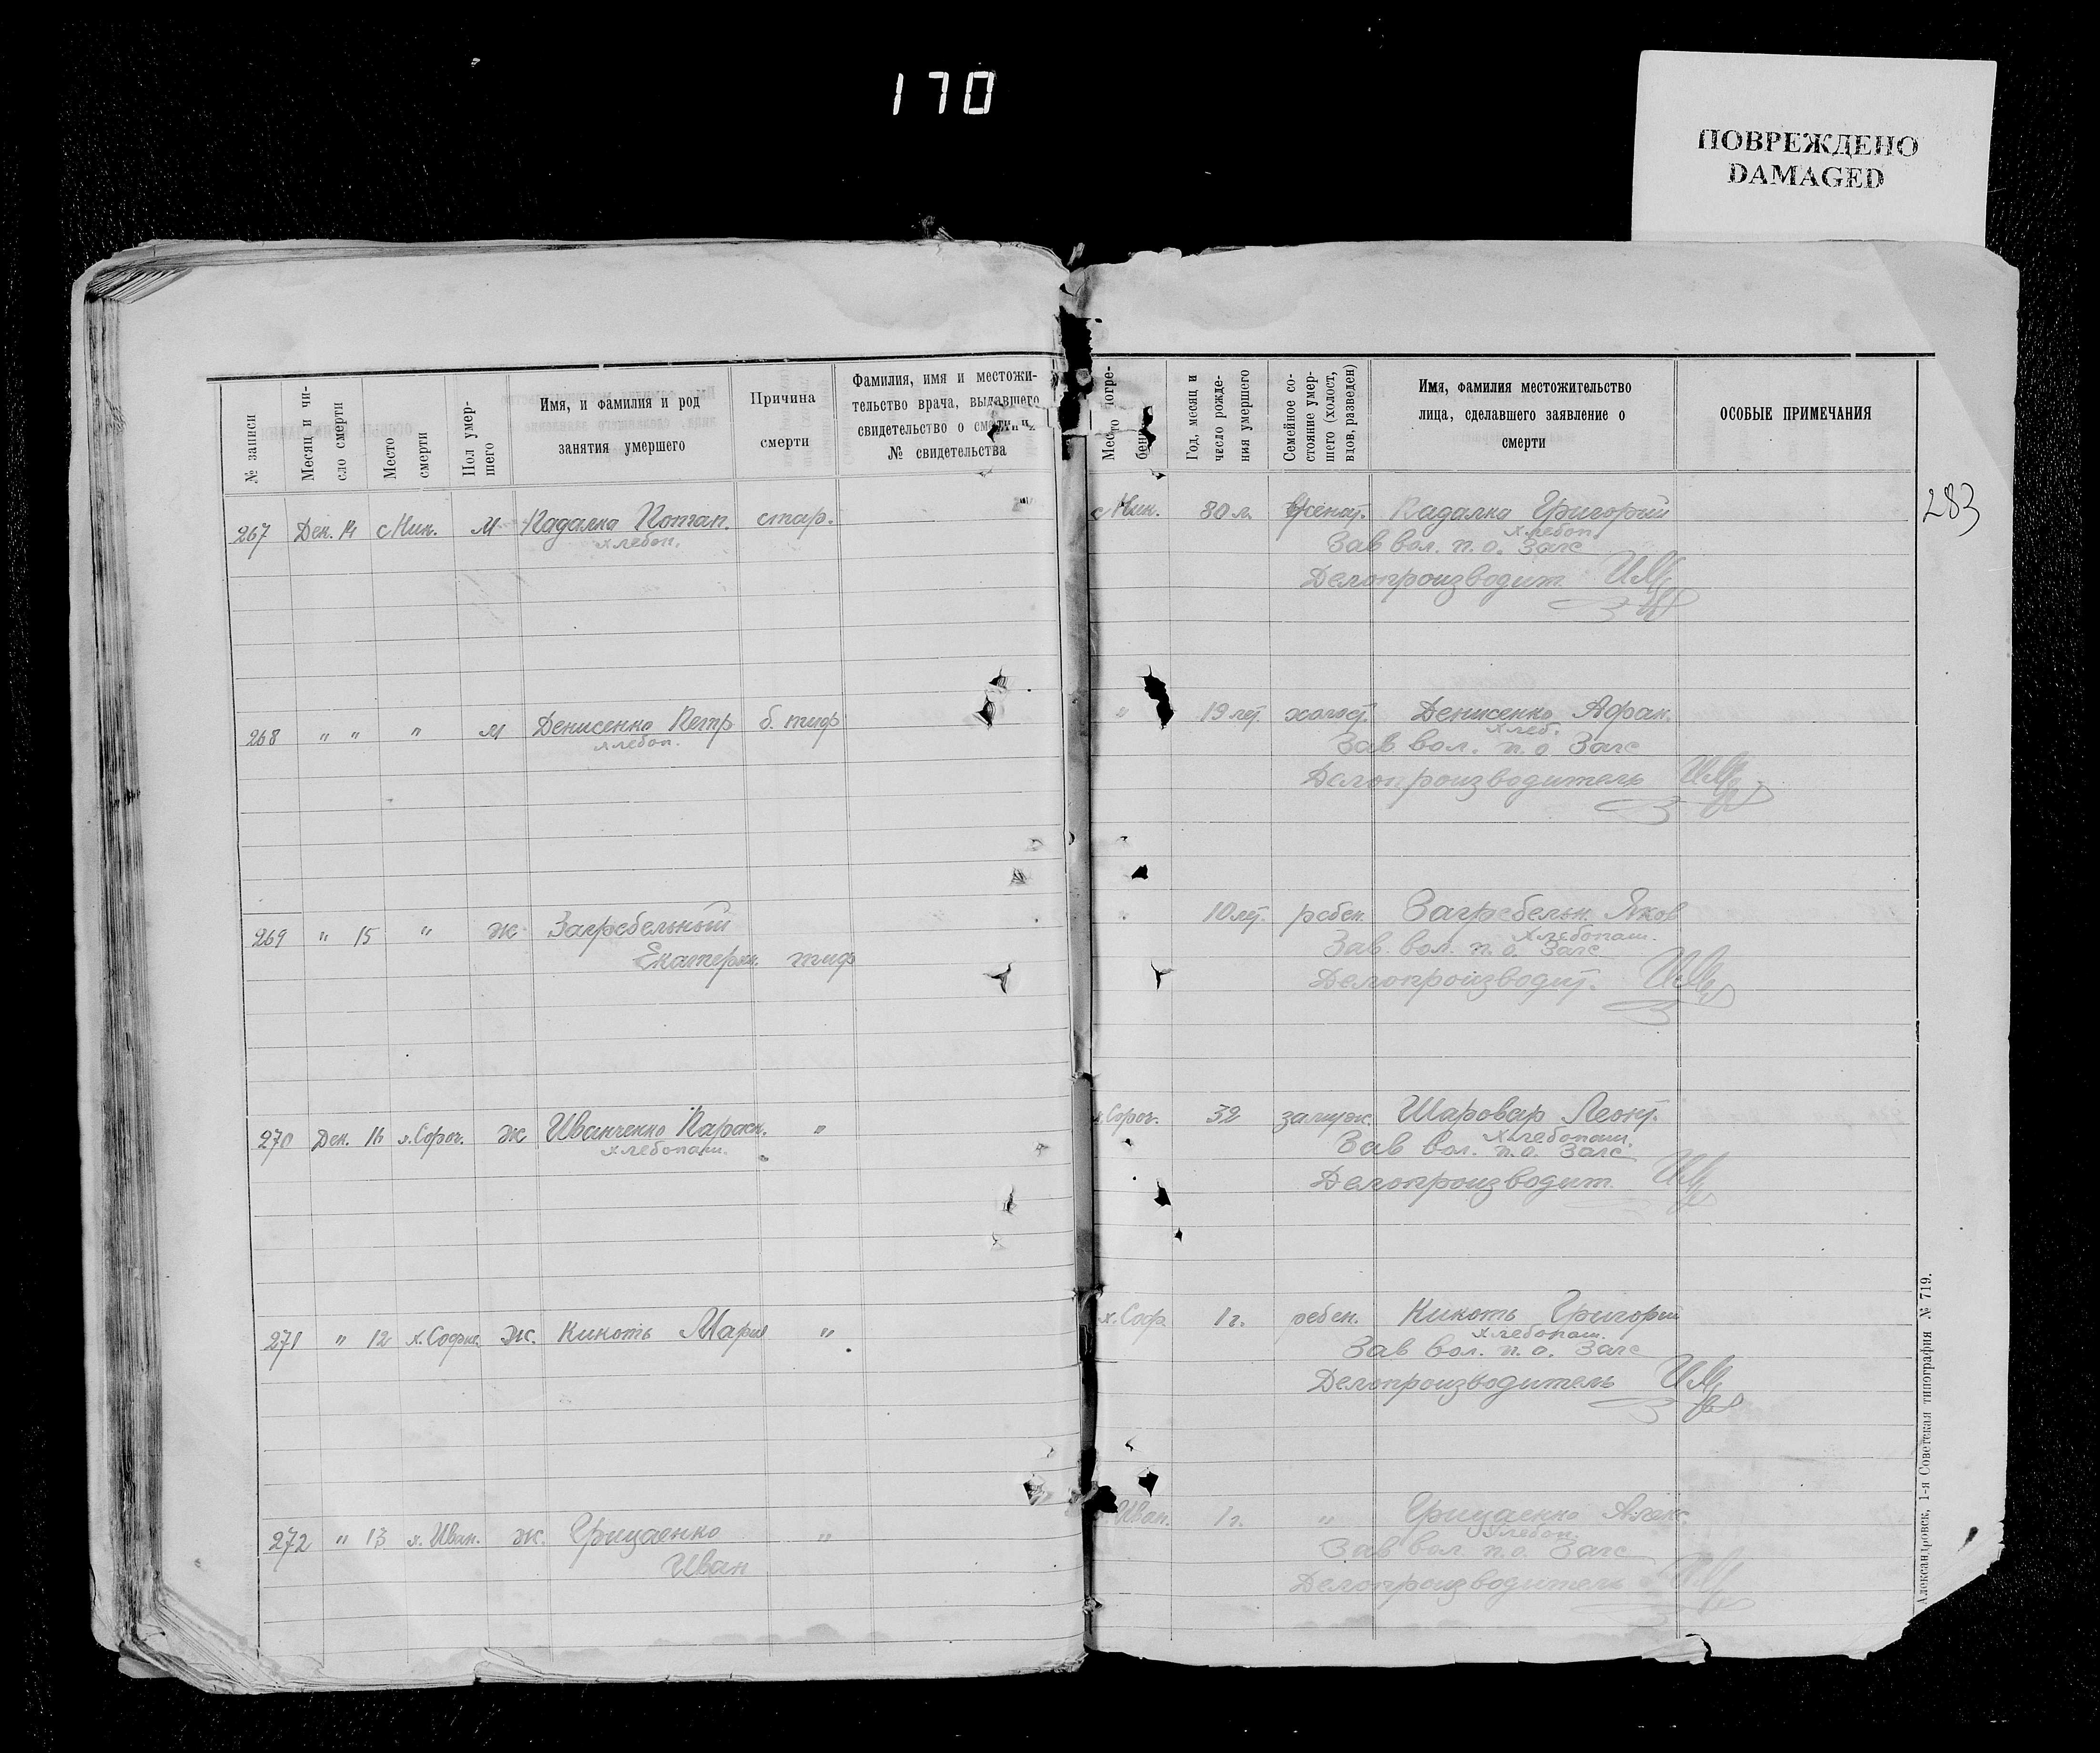 170
ПОВРЕЖДЕНО
DAMAGED
№ записи
Месяц и чи-
сло смерти
Место
смерти
Пол умер-
шего
Имя, и фамилия и род
занятия умершего
Причина
смерти
Фамилия, имя и местожи-
тельство врача, выдавшего
свидетельство о смерти и
№ свидетельства
Место погре-
бения
Год, месяц и
число рожде-
ния умершего
Семейное со-
стояние умер-
шего (холост,
вдов, разведен)
Имя, фамилия местожительство
лица, сделавшего заявление о
смерти
ОСОБЫЕ ПРИМЕЧАНИЯ
283
267 Дек. 14 с Ник. м Кадалка Потап. стар. с Ник. 80 л. женат. Кадалка Григорий
хлебоп. хлебоп.
Зав вол. п. о. Загс
Делопроизводит.
268 " " " м Денисенко Петр б. тиф " 19 лет. холост. Денисенко Афан.
хлебоп. хлеб.
Зав вол. п. о Загс
Делопроизводитель
269 " 15 " ж Загребельный " 10 лет. ребен. Загребельн. Яков
Екатерин. тиф хлебопаш.
Зав. вол. п. о. Загс
Делопроизводит.
270 Дек. 16 х. Сороч. ж Иванченко Параск. " х. Сороч. 32 замуж. Шаровар Леонт.
хлебопаш. хлебопаш.
Зав вол. п. о. Загс
Делопроизводит.
271 " 12 х. Софие. ж. Кикоть Мария " х. Соф. 1 г. ребен. Кикоть Григорий
хлебопаш.
Зав вол. п. о. Загс
Делопроизводитель
272 " 13 х. Иван. ж. Грицаенко " Иван. 1 г. " Грицаенко Алек.
Иван хлебоп.
Зав вол. п. о. Загс
Делопроизводитель
Александровск, 1-я Советская типография № 719.